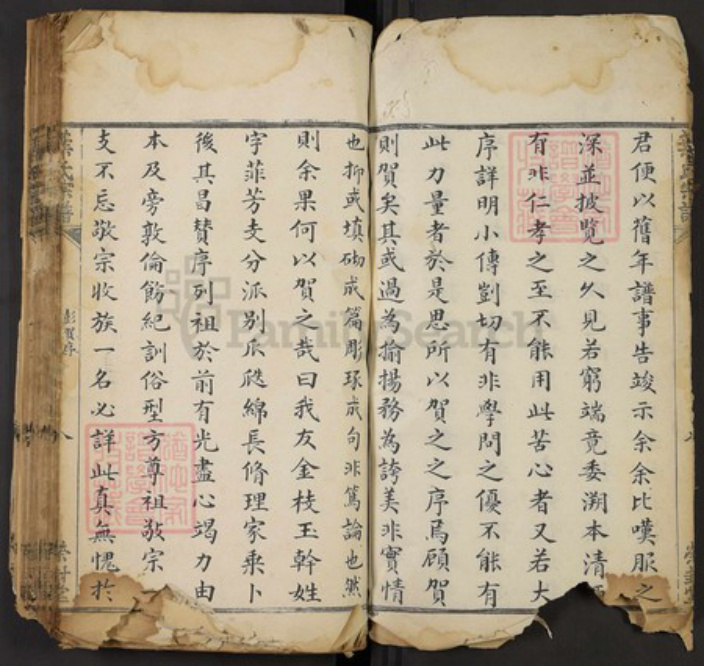 君便以舊年譜事告竣示余余比嘆服之
深並披覽之久見若窮端竟委溯本清
有非仁孝之至不能用此苦心者又若大
序詳明小傳剴切有非學問之優不能有
此力量者於是思所以賀之之序焉顧賀
則賀矣其或過為揄揚務為誇美非實情
也抑或填砌成篇彫琢成句非篤論也然
則余果何以賀之哉曰我友金枝玉幹姓
字菲芳支分派別瓜瓞綿長脩理家乘卜
後其昌贊序列祖於前有光盡心竭力由
本及旁敦倫飭紀訓俗型方尊祖敬宗一
支不忘敬宗收族一名必詳此真無愧於
氏宗譜
彭賀序
八
FamilySearch